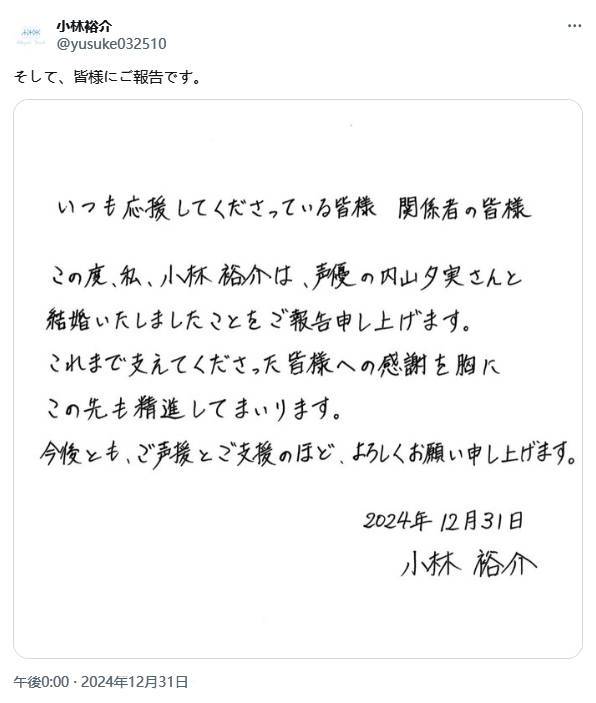 小林裕介
@yusuke032510
そして、皆様にご報告です。
いつも応援してくださっている皆様 関係者の皆様
この度、私、小林裕介は、声優の内山夕実さんと
結婚いたしましたことをご報告申し上げます。
これまで支えてくださった皆様への感謝を胸に
この先も精進してまいります。
今後とも、ご声援とご支援のほど、よろしくお願い申し上げます。
2024年12月31日
小林 裕介
午後0:00 · 2024年12月31日